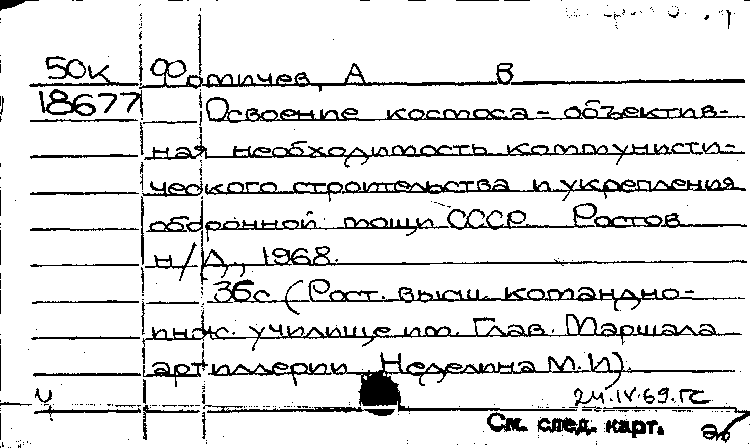 50к Фотичев, А В
18677 Освоение космоса - объектив-
ная необходимость коммунисти-
ческого строительства и укрепления
оборонной мощи СССР. Ростов
н/Д, 1968.
36с (Рост. высш. командно-
инж. училище им. Глав. Маршала
артиллерии Неделина М.И).
24.IV.69.ГС
См. след. карт.